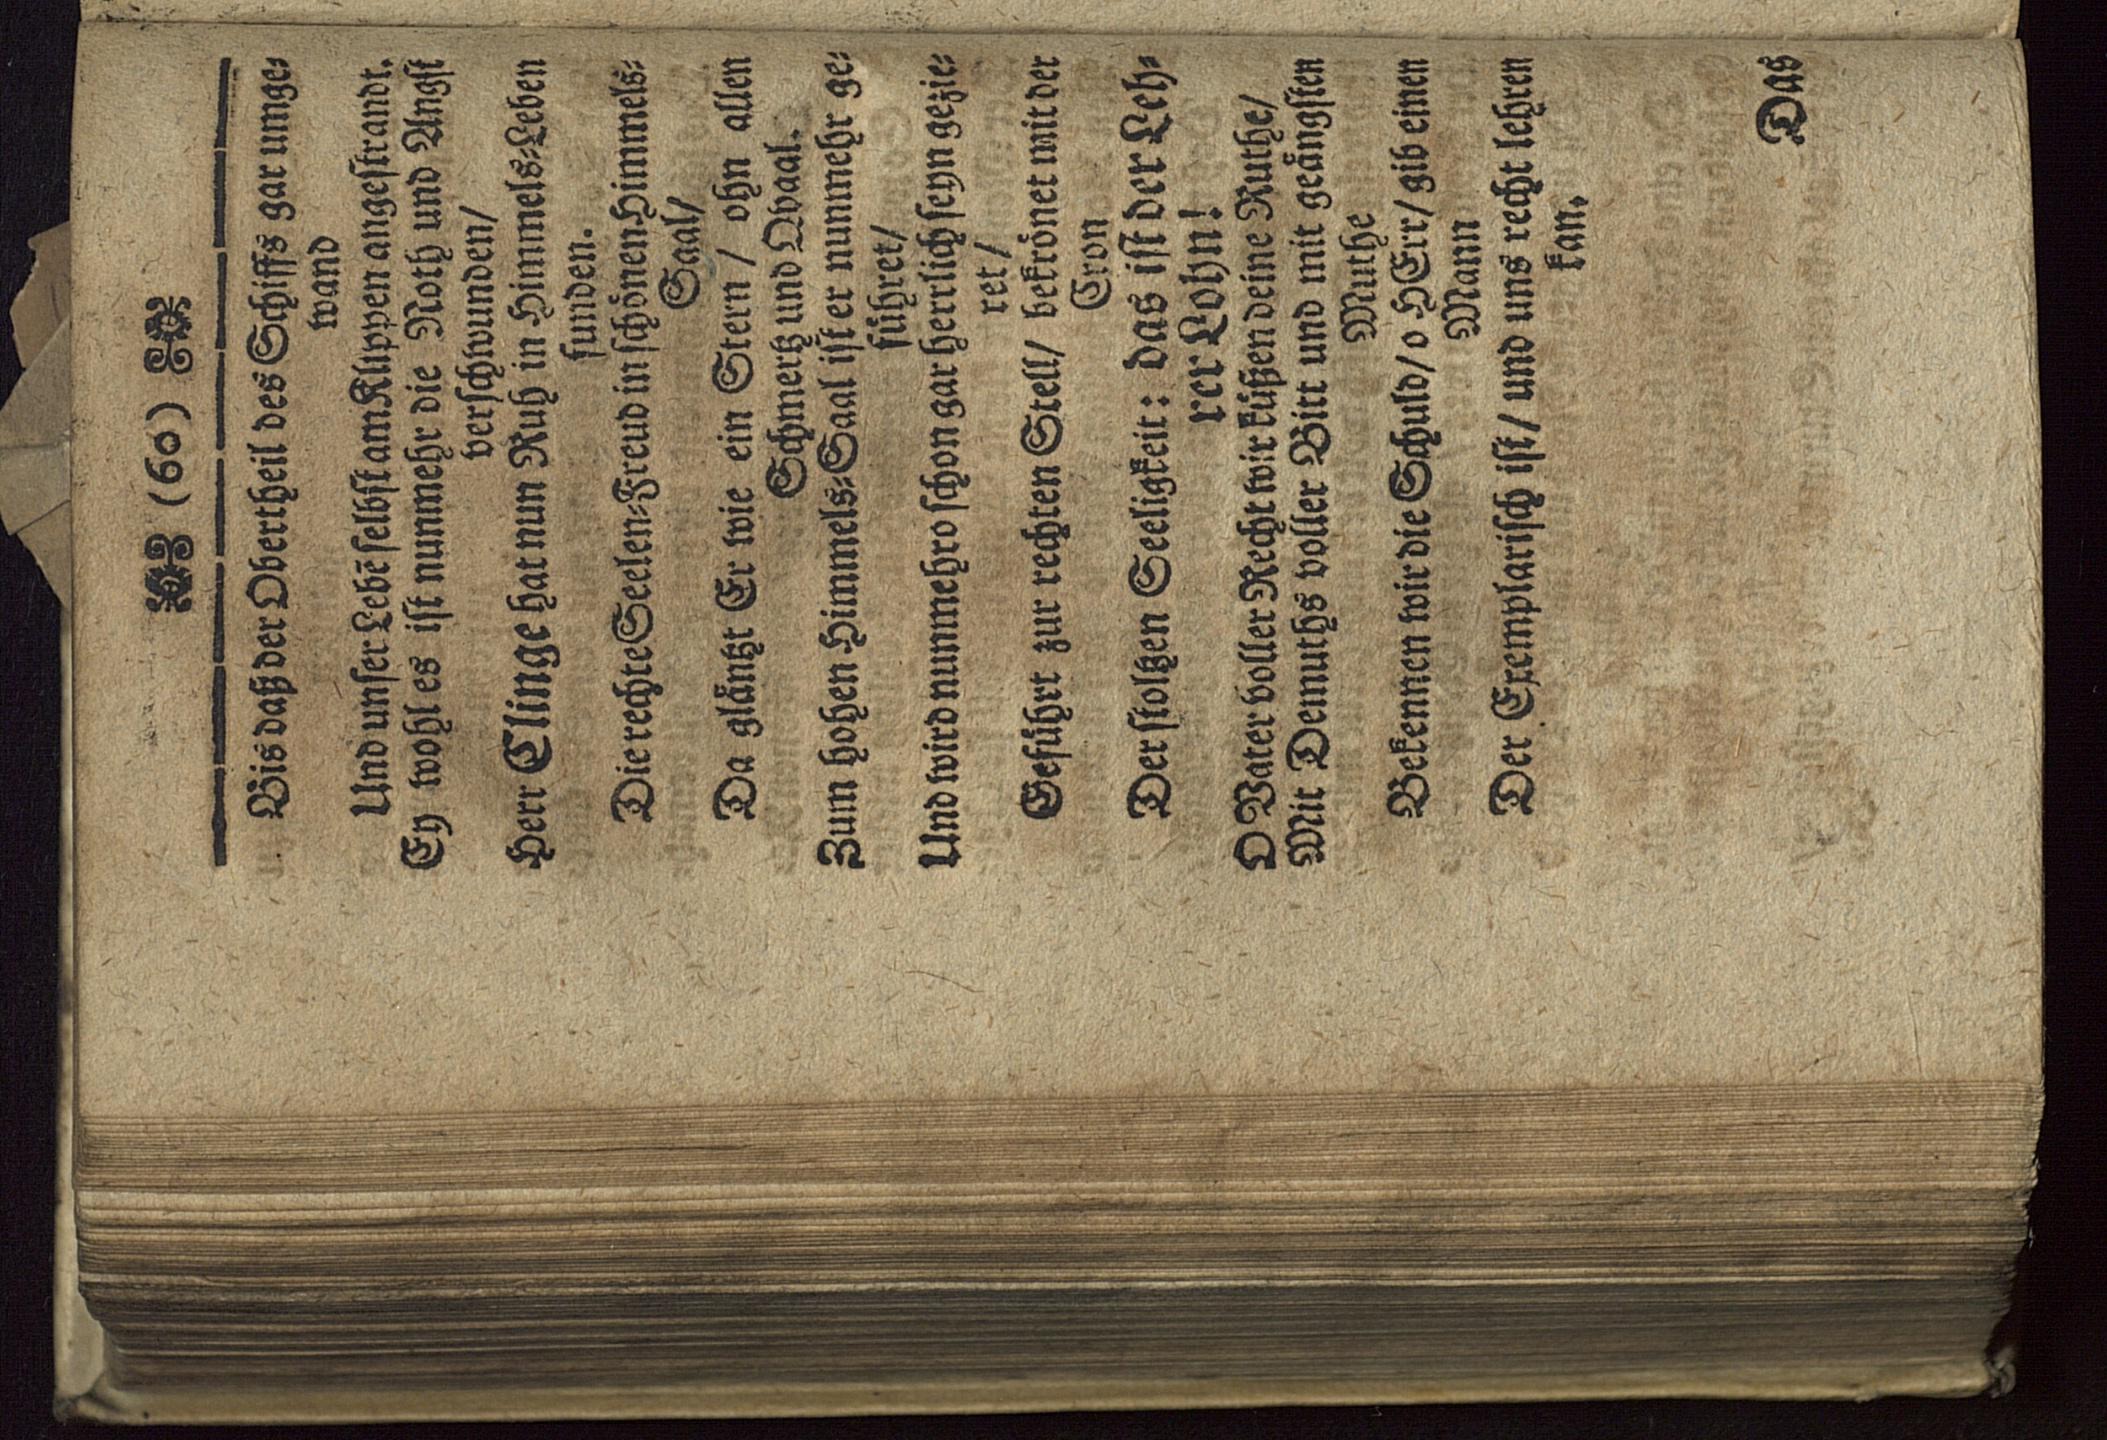 (60)
Bis daß der Obertheil des Schiffs gar umge⸗
wand
Und unser Lebē selbst am Klippen angestrandt.
Ey wohl es ist nunmehr die Noth und Angst
verschwunden/
Herr Clinge hat nun Ruh in Himmels⸗Leben
funden.
Die rechte Seelen⸗Freud in schönen Himmels⸗
Saal/
Da gläntzt Er wie ein Stern / ohn allen
Schmertz und Qvaal.
Zum hohen Himmels⸗Saal ist er nunmehr ge⸗
führet/
Und wird nunmehro schon gar herrlich seyn gezie⸗
ret/
Geführt zur rechten Stell/ bekrönet mit der
Cron
Der stoltzen Seeligkeit: das ist der Leh⸗
rer Lohn!
O Vater voller Recht wir küßen deine Ruthe/
Mit Demuths voller Bitt und mit geängsten
Muthe
Bekennen wir die Schuld/ o HErr/ gib einen
Mann
Der Exemplarisch ist/ und uns recht lehren
kan.
Das